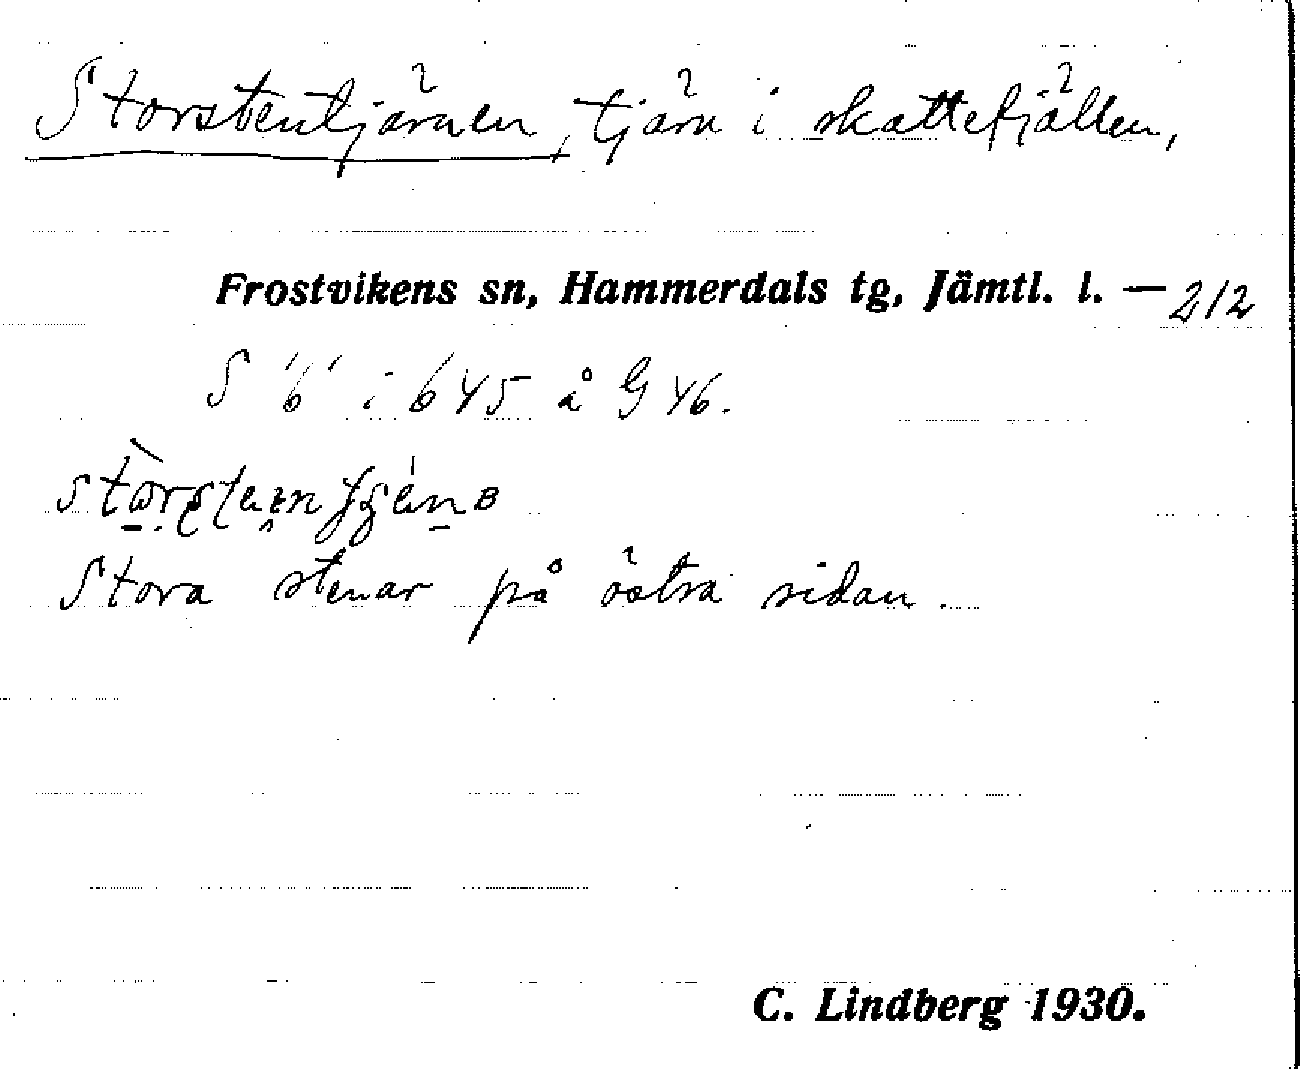 Storstentjärnen, tjärn i skattefjällen,
Frostvikens sn, Hammerdals tg, Jämtl. l. — 212
S '6' i 645 å G 46.
Stora stenar på östra sidan.
C. Lindberg 1930.